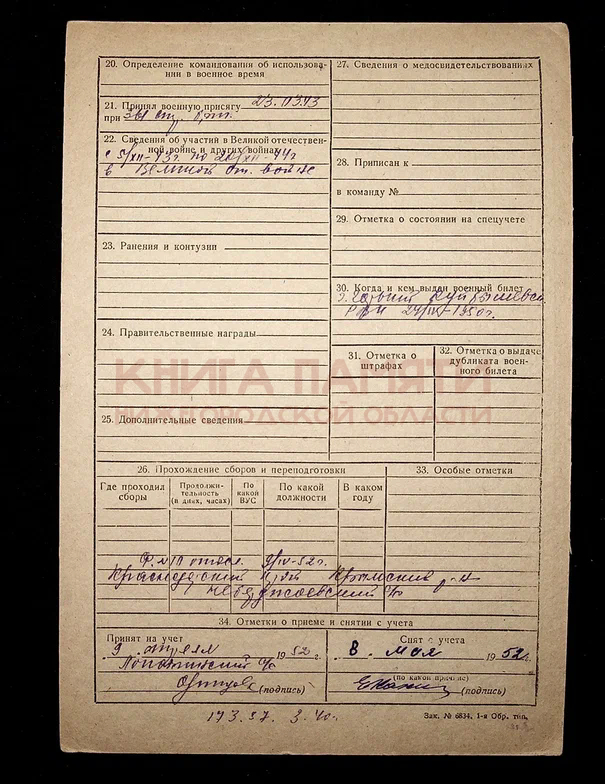 20. Определение командования об использова-
нии в военное время
21. Принял военную присягу
при
22. Сведения об участии в Великой отечествен-
ной войне и других войнах
с 5/XII-43г. по
в Великой от. войне
23. Ранения и контузии
24. Правительственные награды
25. Дополнительные сведения
27. Сведения о медосвидетельствованиях
28. Приписан к
в команду №
29. Отметка о состоянии на спецучете
30. Когда и кем выдан военный билет
РВК 1950г.
31. Отметка о
штрафах
32. Отметка о выдаче
дубликата воен-
ного билета
КНИГА ПАМЯТИ
НИЖЕГОРОДСКОЙ ОБЛАСТИ
26. Прохождение сборов и переподготовки
Где проходил
сборы
Продолжи-
тельность
(в днях, часах)
По
какой
ВУС
По какой
должности
В каком
году
33. Особые отметки
9/IV-52г.
Краснодарский край Крымский р-н
с/с
34. Отметки о приеме и снятии с учета
Принят на учет
9 апреля 1952 г.
с/с
(подпись)
Снят с учета
8. мая 1952 г.
(по какой причине)
(подпись)
Зак. № 6834, 1-я Обр. тип.